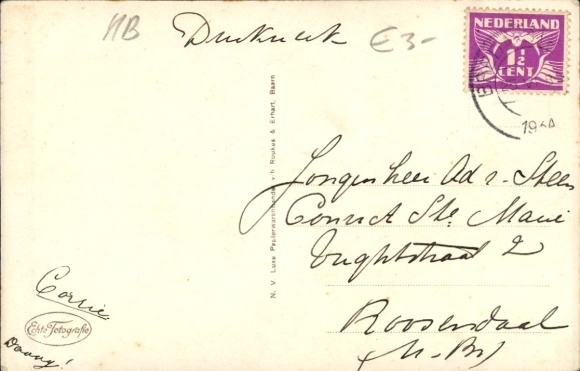 NB Drukwerk €3-
NEDERLAND
1½
CENT
N. V. Luxe Papierwarenhandel v/h Roukes & Erhart, Baarn
Jongenheer Ad v. Steen
Convict Ste Marie
Vughtstraat 2
Roosendaal
(N-Br)
Corrie
Echte Fotografie
Daaag!